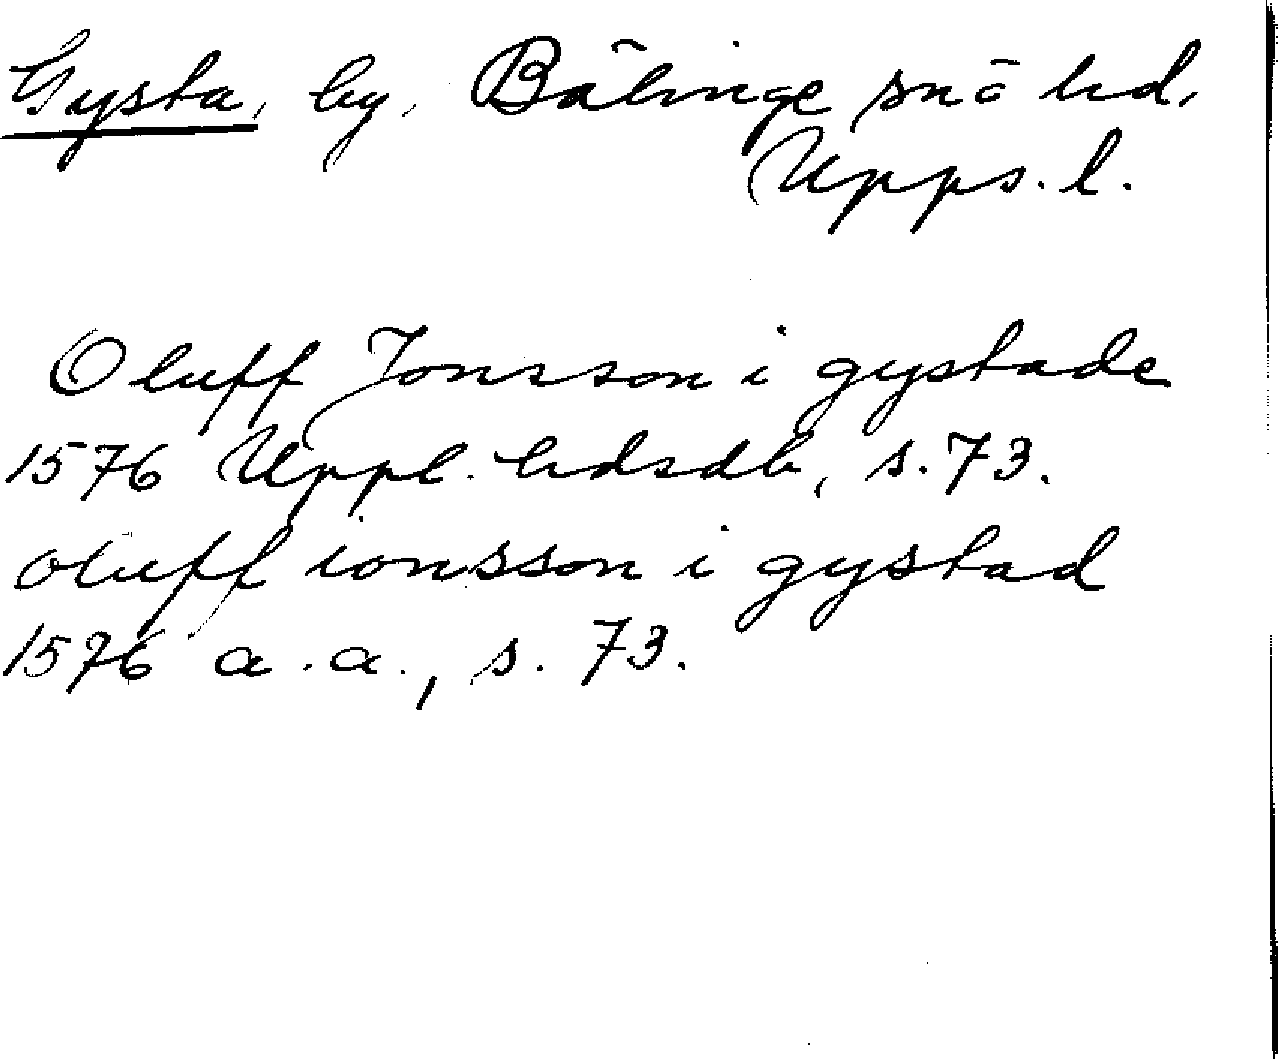 Gysta, by, Bälinge sn o hd,
Upps. l.
Oluff Jonsson i gystade
1576 Uppl. hdsdb, s. 73.
oluff ionsson i gystad
1576 a.a., s. 73.